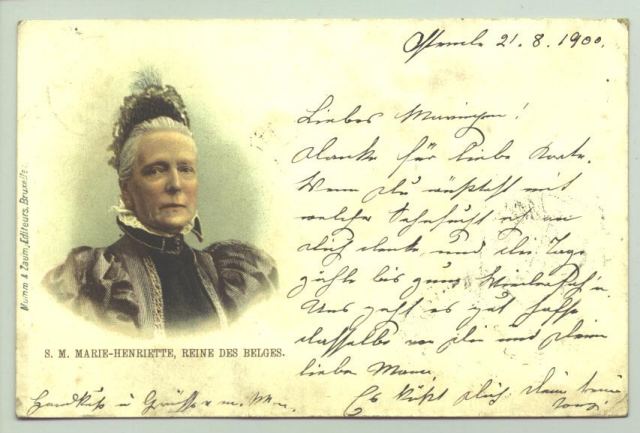 Ostende 21. 8. 1900.
Liebes
danke für liebe Karte.
Wenn du wüsstest mit
welcher Sehnsucht ich an
dich denke und die Tage
zähle bis zum
Uns geht es gut hoffe
dasselbe von dir und deiner
lieben Mama.
Es küßt dich dein
Handkuß u Grüsse v. m.
S. M. MARIE-HENRIETTE, REINE DES BELGES.
Mumm & Zaum, Editeurs, Bruxelles.